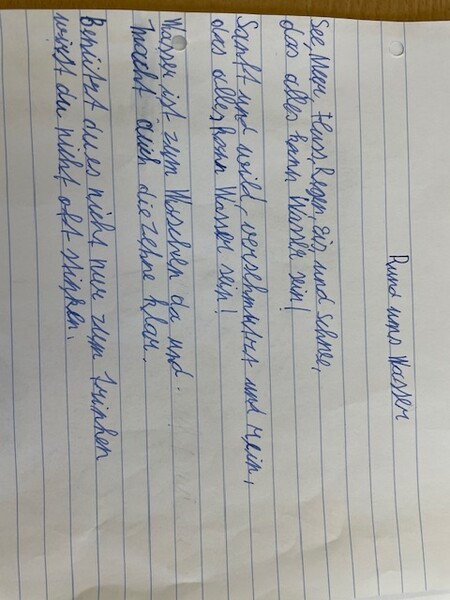 Rund ums Wasser
See, Meer, Fluss, Regen, Eis und Schnee,
das alles kann Wasser sein!
Sanft und wild, verschmutzt und rein,
das alles kann Wasser sein!
Wasser ist zum Waschen da und
macht auch die Zähne klar.
Benützt du es nicht nur zum trinken
wirst du nicht oft stinken.